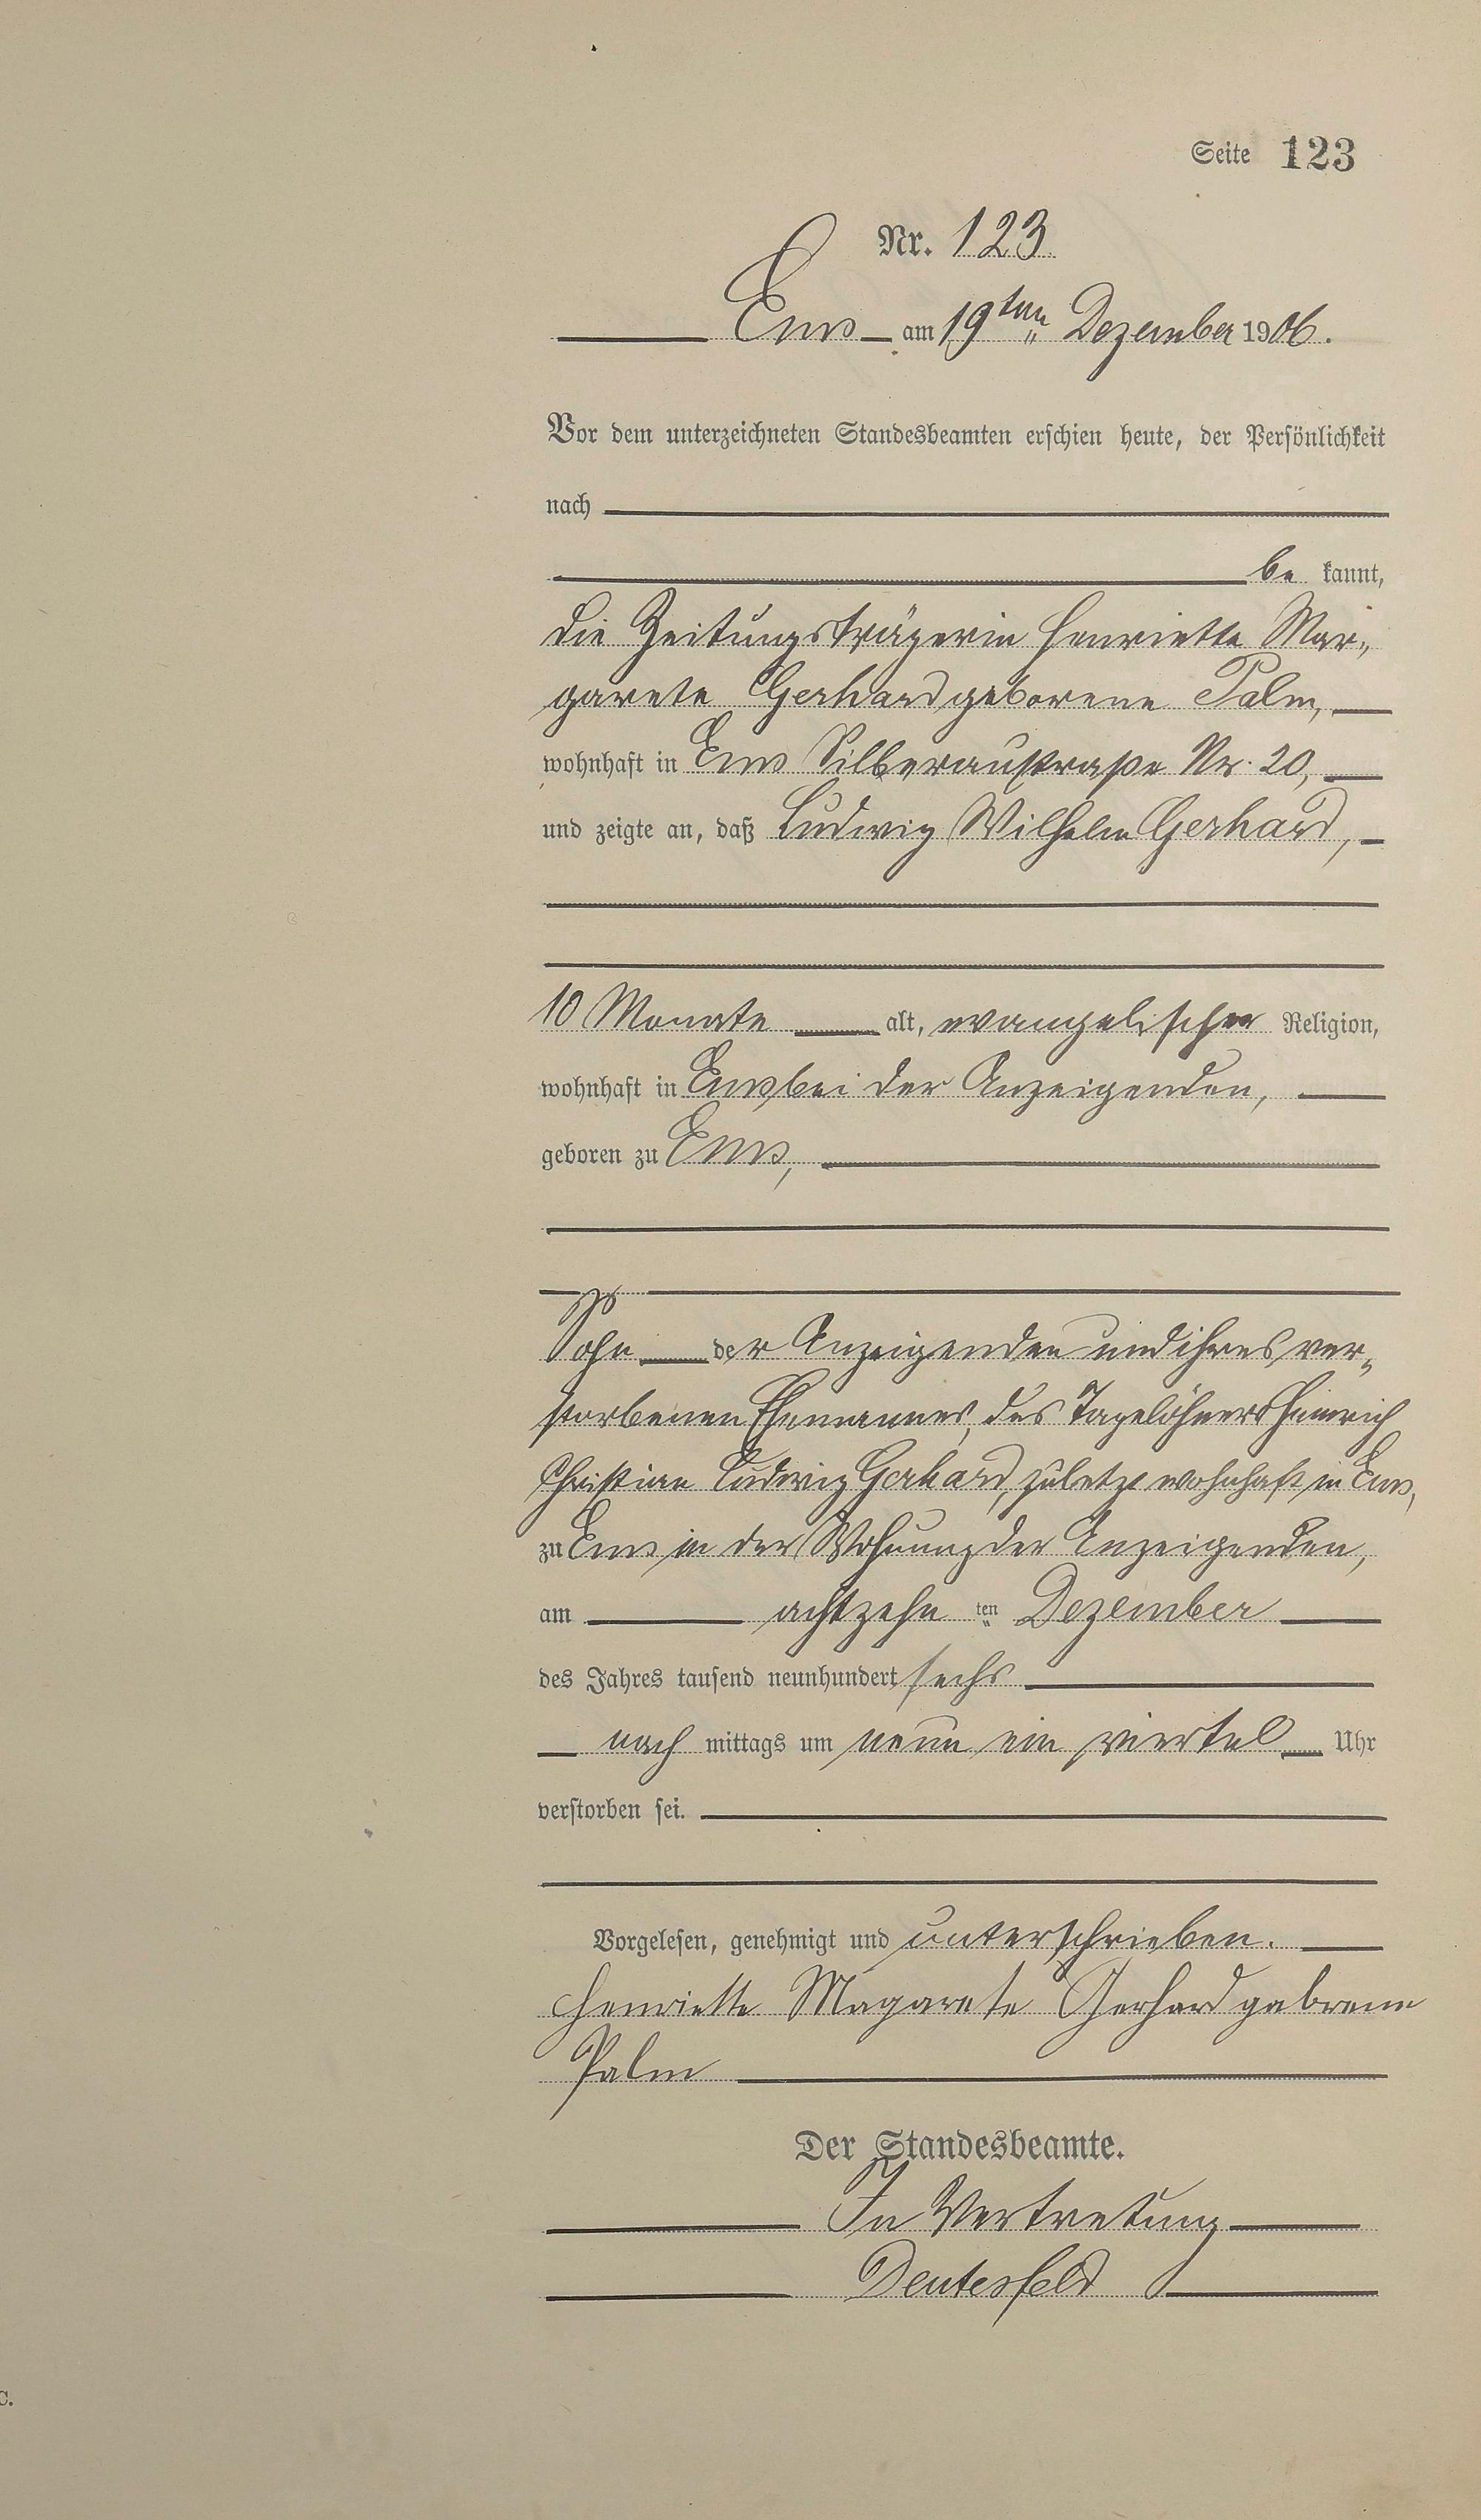 Seite 123
Nr. 123
Ems am 19ten Dezember 1906.
Vor dem unterzeichneten Standesbeamten erschien heute, der Persönlichkeit
nach
be kannt,
die Zeitungsträgerin Henriette Mar-
garete Gerhard geborene Palm,
wohnhaft in Ems Silberaustraße Nr. 20,
und zeigte an, daß Ludwig Wilhelm Gerhard,
10 Monate alt, evangelischer Religion,
wohnhaft in Ems bei der Anzeigenden,
geboren zu Ems,
Sohn der Anzeigenden und ihres ver-
storbenen Ehemannes, des Tagelöhners Heinrich
Christian Ludwig Gerhard, zuletzt wohnhaft in Ems,
zu Ems in der Wohnung der Anzeigenden,
am achtzehn ten Dezember
des Jahres tausend neunhundert sechs
nach mittags um neun ein viertel Uhr
verstorben sei.
Vorgelesen, genehmigt und unterschrieben.
Henriette Magarete Gerhard gebrene
Palm
Der Standesbeamte.
In Vertretung
Deutesfeld
c.